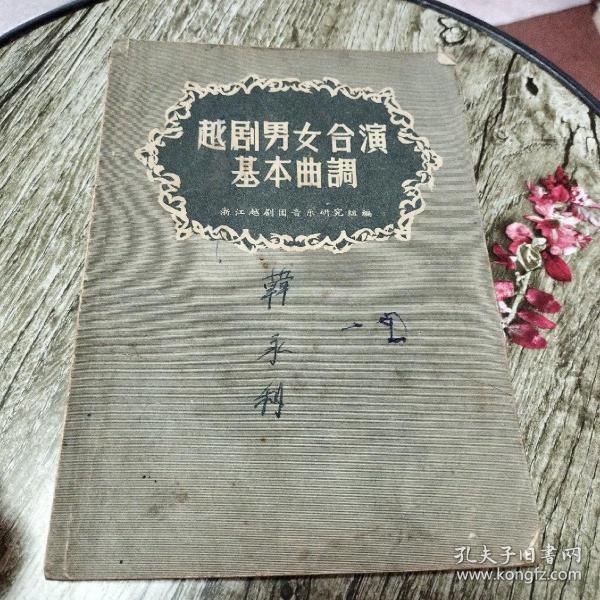 越剧男女合演
基本曲調
浙江越剧团音乐研究組編
韓
永
利
孔夫子旧书网
www.kongfz.com